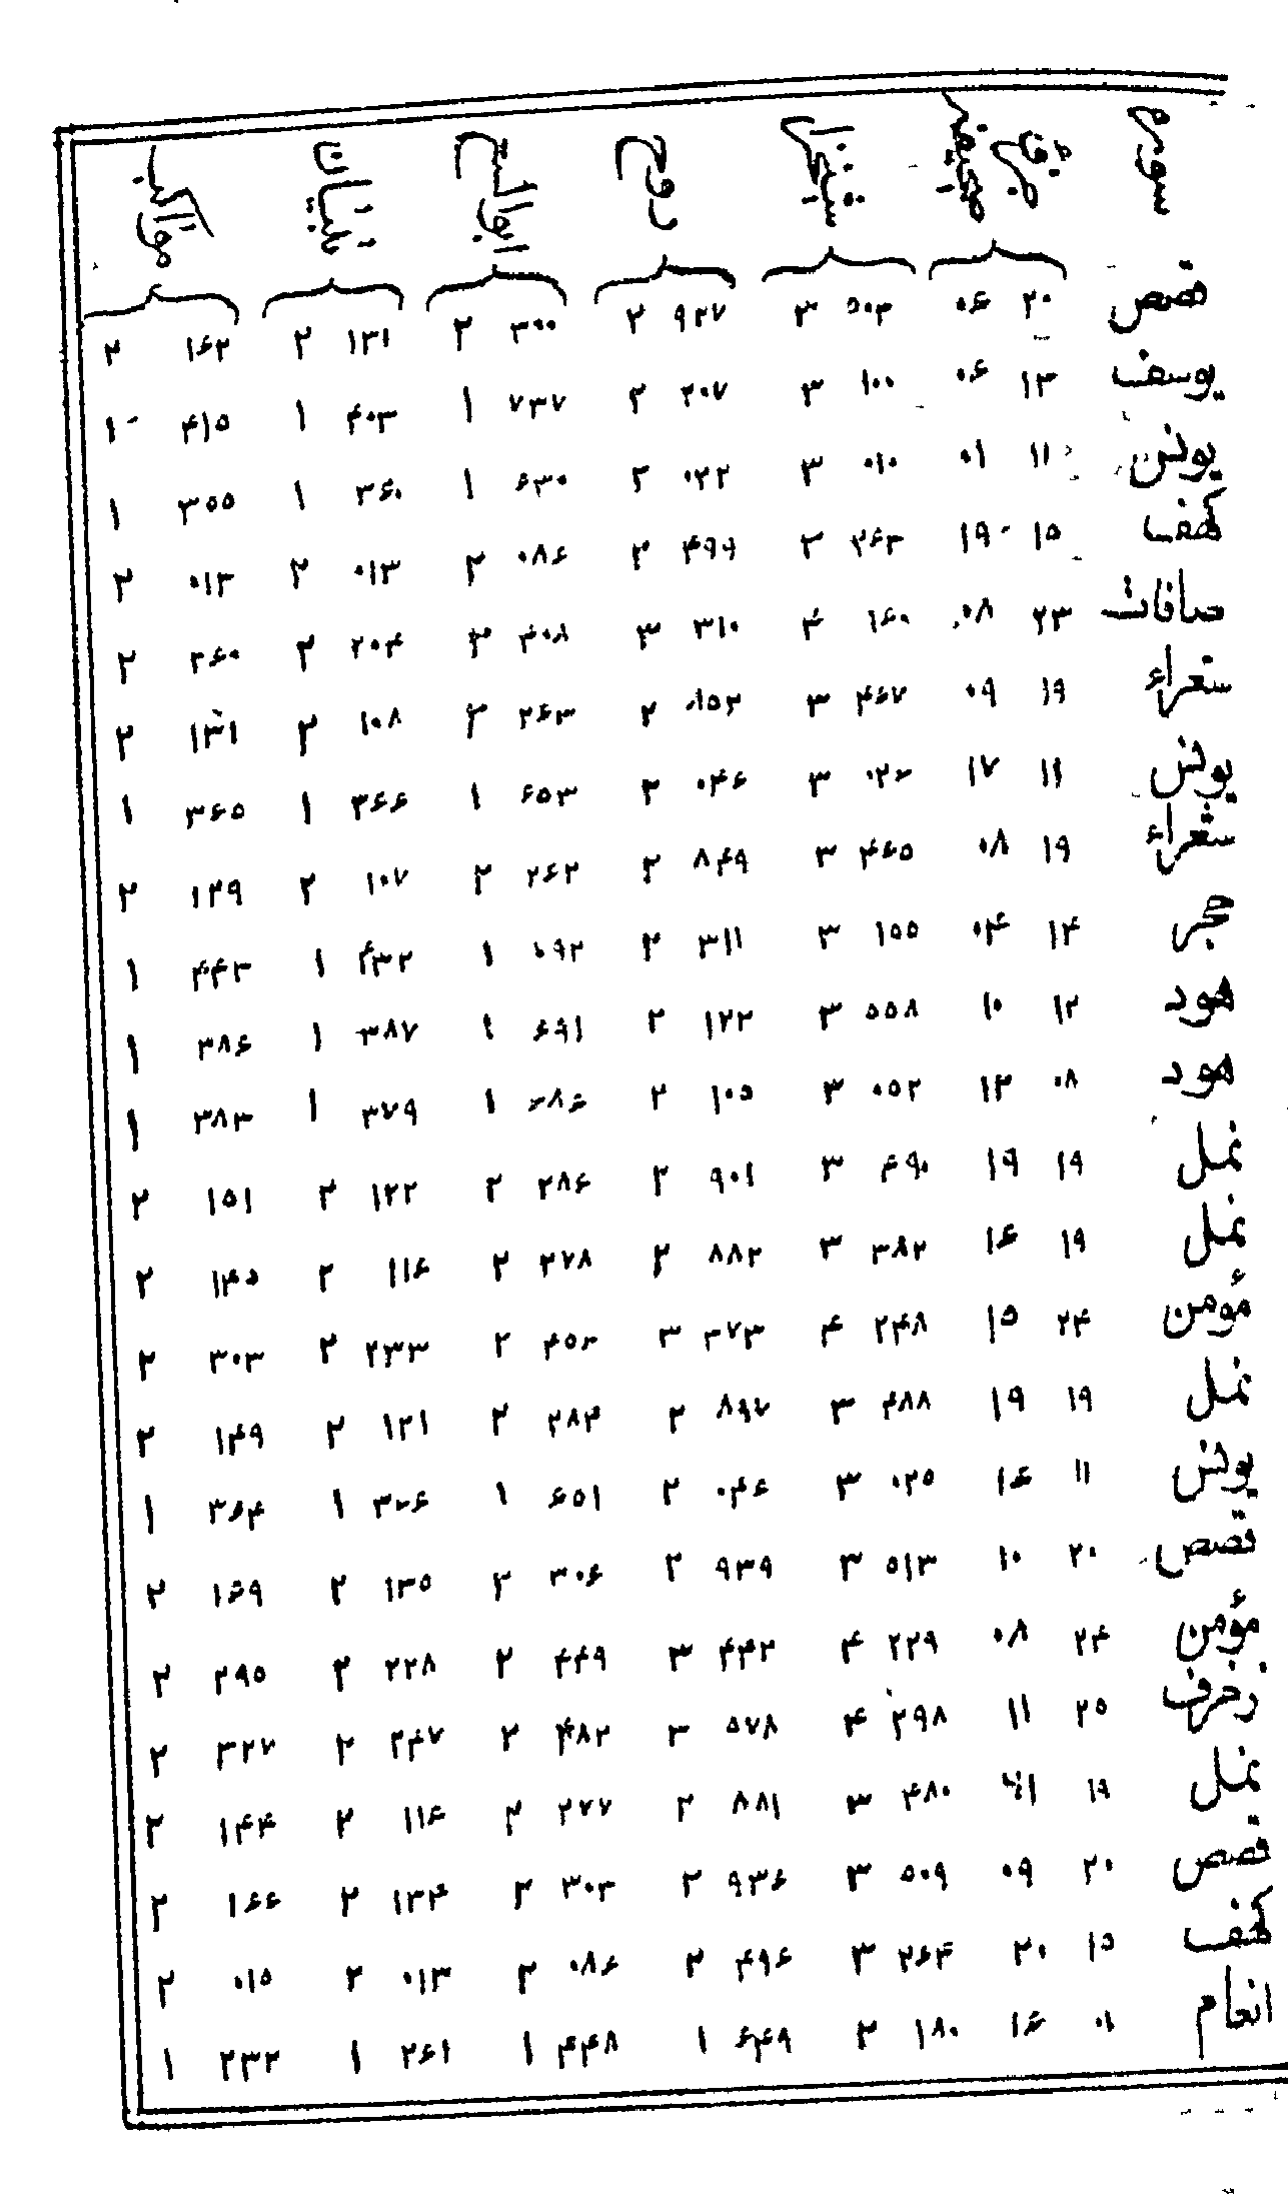 سوره جزء صحیفه شیخزاده روح ابو السعود تبیان مواکب
قصص ۲۰ ۰۶ ۵۰۳ ۳ ۹۲۷ ۲ ۳۰۰ ۲ ۱۳۱ ۲ ۱۶۲ ۲
یوسف ۱۳ ۰۶ ۱۰۰ ۳ ۲۰۷ ۲ ۷۳۷ ۱ ۴۰۳ ۱ ۴۱۵ ۱
یونس ۱۱ ۰۱ ۰۱۰ ۳ ۰۲۲ ۲ ۶۳۰ ۱ ۳۶۰ ۱ ۳۵۵ ۱
کهف ۱۵ ۱۹ ۲۶۳ ۳ ۴۹۹ ۲ ۰۸۶ ۲ ۰۱۳ ۲ ۰۱۳ ۲
صافات ۲۳ ۰۸ ۱۶۰ ۴ ۳۱۰ ۳ ۴۰۸ ۲ ۲۰۴ ۲ ۲۶۰ ۲
شعراء ۱۹ ۰۹ ۴۶۷ ۳ ۲ ۲۶۳ ۲ ۱۰۸ ۲ ۱۳۱ ۲
یونس ۱۱ ۱۷ ۰۲۶ ۳ ۰۴۶ ۲ ۶۵۳ ۱ ۳۶۶ ۱ ۳۶۵ ۱
شعراء ۱۹ ۰۸ ۴۶۵ ۳ ۸۴۹ ۲ ۲۶۲ ۲ ۱۰۷ ۲ ۱۲۹ ۲
حجر ۱۴ ۰۴ ۱۵۵ ۳ ۳۱۱ ۲ ۱ ۴۳۲ ۱ ۴۴۳ ۱
هود ۱۲ ۱۰ ۵۵۸ ۳ ۱۲۲ ۲ ۶۹۱ ۱ ۳۸۷ ۱ ۳۸۶ ۱
هود ۰۸ ۱۲ ۰۵۲ ۳ ۱۰۵ ۲ ۱ ۳۷۹ ۱ ۳۸۳ ۱
نمل ۱۹ ۱۹ ۴۹۰ ۳ ۹۰۱ ۲ ۲۸۶ ۲ ۱۲۲ ۲ ۱۵۱ ۲
نمل ۱۹ ۱۶ ۳۸۲ ۳ ۸۸۲ ۲ ۲۷۸ ۲ ۱۱۶ ۲ ۱۴۵ ۲
مؤمن ۲۴ ۱۵ ۲۴۸ ۴ ۳ ۴۵۳ ۲ ۲۳۳ ۲ ۳۰۳ ۲
نمل ۱۹ ۱۹ ۴۸۸ ۳ ۸۹۷ ۲ ۲۸۴ ۲ ۱۲۱ ۲ ۱۴۹ ۲
یونس ۱۱ ۱۶ ۰۲۵ ۳ ۰۴۶ ۲ ۶۵۱ ۱ ۱ ۳۶۴ ۱
قصص ۲۰ ۱۰ ۵۱۳ ۳ ۹۳۹ ۲ ۳۰۶ ۲ ۱۳۵ ۲ ۱۶۹ ۲
مؤمن ۲۴ ۰۸ ۲۲۹ ۴ ۴۴۲ ۳ ۴۴۹ ۲ ۲۲۸ ۲ ۲۹۵ ۲
زخرف ۲۵ ۱۱ ۲۹۸ ۴ ۵۷۸ ۳ ۴۸۲ ۲ ۲۴۷ ۲ ۳۲۷ ۲
نمل ۱۹ ۴۸۰ ۳ ۸۸۱ ۲ ۲۷۷ ۲ ۱۱۶ ۲ ۱۴۴ ۲
قصص ۲۰ ۰۹ ۵۰۹ ۳ ۹۳۶ ۲ ۳۰۳ ۲ ۱۳۴ ۲ ۱۶۶ ۲
کهف ۱۵ ۲۰ ۲۶۴ ۳ ۴۹۶ ۲ ۰۸۶ ۲ ۰۱۳ ۲ ۰۱۵ ۲
انعام ۰۱ ۱۶ ۱۸۰ ۲ ۶۴۹ ۱ ۴۴۸ ۱ ۲۶۱ ۱ ۲۳۲ ۱